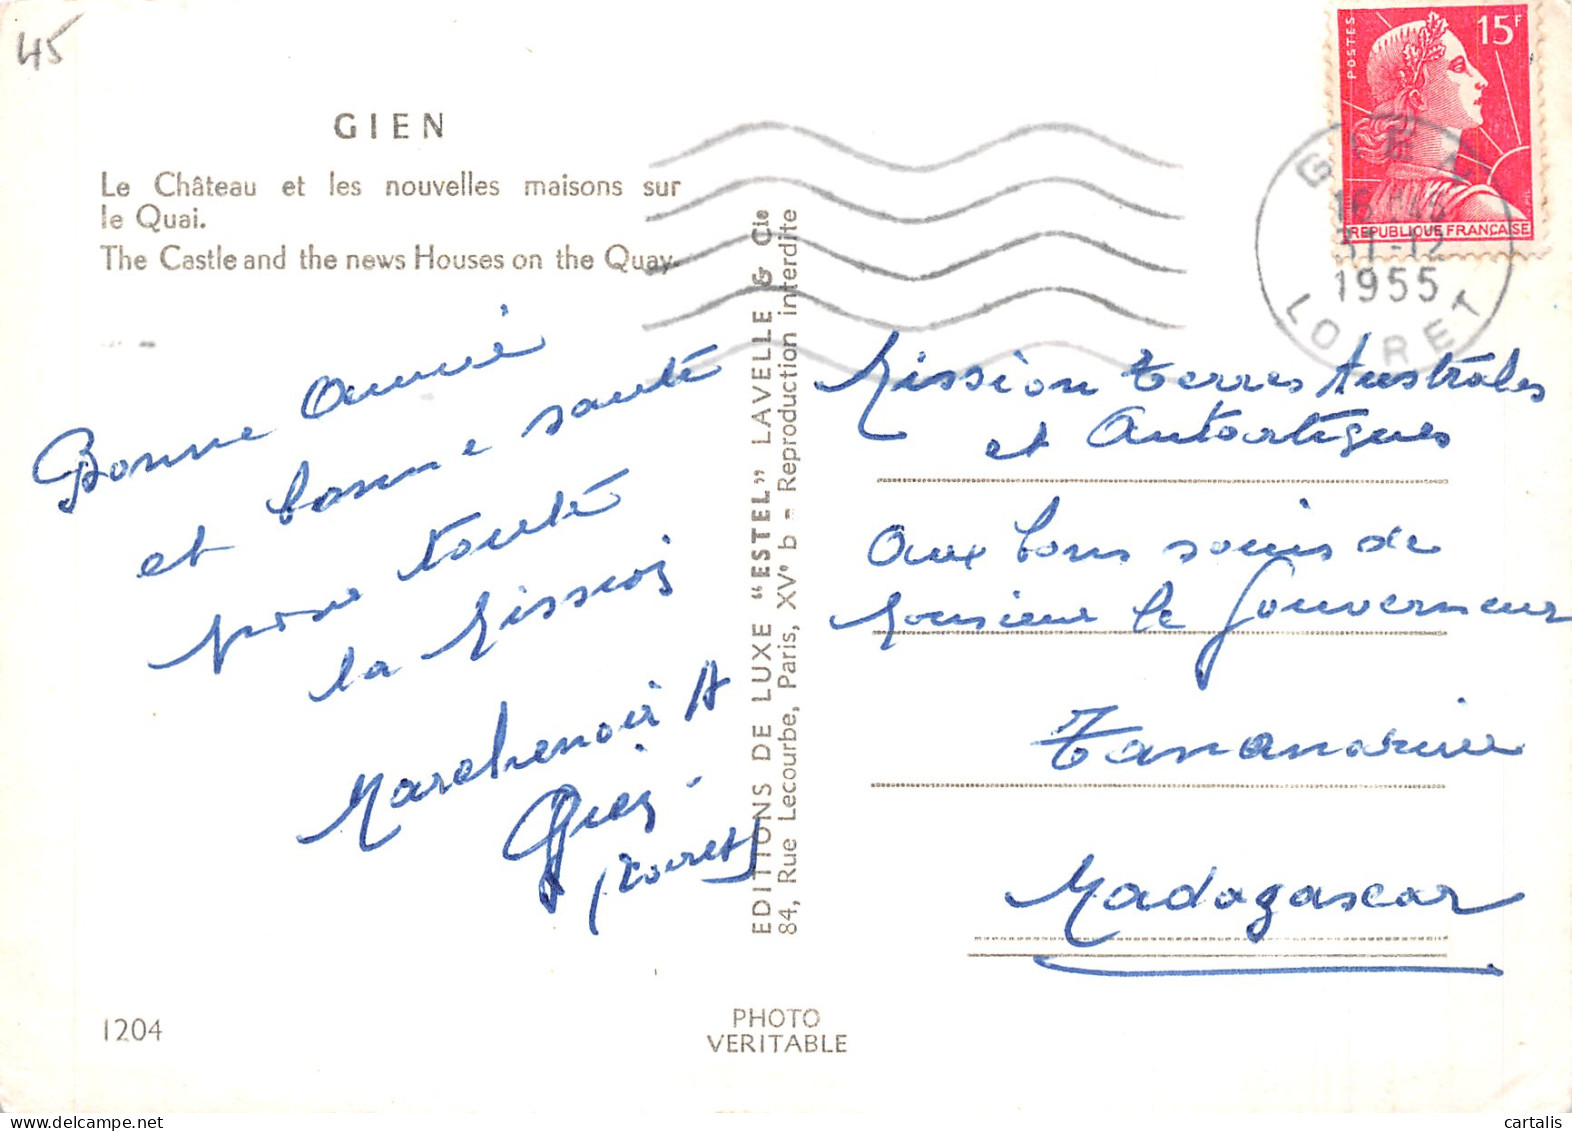 45
GIEN
Le Château et les nouvelles maisons sur
le Quai.
The Castle and the news Houses on the Quay.
POSTES
15F
REPUBLIQUE FRANÇAISE
GIEN
16 H45
11-12
1955
LOIRET
Bonne Année
et bonne santé
pour toute
la Mission
Marchenoir A
Gien
(Loiret)
EDITIONS DE LUXE "ESTEL" LAVELLE & Cie
84, Rue Lecourbe, Paris, XVe b - Reproduction interdite
Mission Terres Australes
et Antartiques
Aux bons soins de
Monsieur le Gouverneur
Tananarive
Madagascar
1204
PHOTO
VERITABLE
cartalis
www.delcampe.net